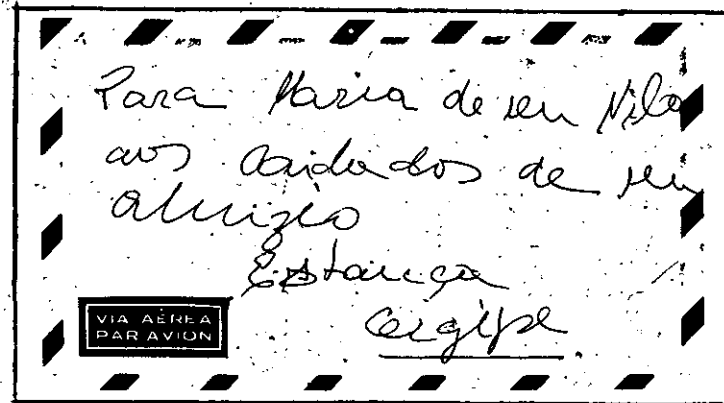 Para Maria de seu Nilo
aos cuidados de seu
aluizio
Estança
cergipe
VIA AÉREA
PAR AVION